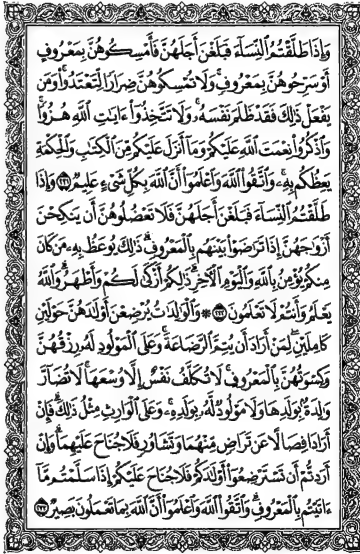 وَإِذَا طَلَّقْتُمُ النِّسَاءَ فَبَلَغْنَ أَجَلَهُنَّ فَأَمْسِكُوهُنَّ بِمَعْرُوفٍ
أَوْ سَرِّحُوهُنَّ بِمَعْرُوفٍ وَلَا تُمْسِكُوهُنَّ ضِرَارًا لِّتَعْتَدُوا وَمَن
يَفْعَلْ ذَٰلِكَ فَقَدْ ظَلَمَ نَفْسَهُ وَلَا تَتَّخِذُوا ءَايَٰتِ اللَّهِ هُزُوًا
وَاذْكُرُوا نِعْمَتَ اللَّهِ عَلَيْكُمْ وَمَا أَنزَلَ عَلَيْكُم مِّنَ الْكِتَٰبِ وَالْحِكْمَةِ
يَعِظُكُم بِهِ وَاتَّقُوا اللَّهَ وَاعْلَمُوا أَنَّ اللَّهَ بِكُلِّ شَيْءٍ عَلِيمٌ ٢٣١ وَإِذَا
طَلَّقْتُمُ النِّسَاءَ فَبَلَغْنَ أَجَلَهُنَّ فَلَا تَعْضُلُوهُنَّ أَن يَنكِحْنَ
أَزْوَٰجَهُنَّ إِذَا تَرَٰضَوْا بَيْنَهُم بِالْمَعْرُوفِ ذَٰلِكَ يُوعَظُ بِهِ مَن كَانَ
مِنكُمْ يُؤْمِنُ بِاللَّهِ وَالْيَوْمِ الْءَاخِرِ ذَٰلِكُمْ أَزْكَىٰ لَكُمْ وَأَطْهَرُ وَاللَّهُ
يَعْلَمُ وَأَنتُمْ لَا تَعْلَمُونَ ٢٣٢ ۞ وَالْوَٰلِدَٰتُ يُرْضِعْنَ أَوْلَٰدَهُنَّ حَوْلَيْنِ
كَامِلَيْنِ لِمَنْ أَرَادَ أَن يُتِمَّ الرَّضَاعَةَ وَعَلَى الْمَوْلُودِ لَهُ رِزْقُهُنَّ
وَكِسْوَتُهُنَّ بِالْمَعْرُوفِ لَا تُكَلَّفُ نَفْسٌ إِلَّا وُسْعَهَا لَا تُضَارَّ
وَٰلِدَةٌ بِوَلَدِهَا وَلَا مَوْلُودٌ لَّهُ بِوَلَدِهِ وَعَلَى الْوَارِثِ مِثْلُ ذَٰلِكَ فَإِنْ
أَرَادَا فِصَالًا عَن تَرَاضٍ مِّنْهُمَا وَتَشَاوُرٍ فَلَا جُنَاحَ عَلَيْهِمَا وَإِنْ
أَرَدتُّمْ أَن تَسْتَرْضِعُوا أَوْلَٰدَكُمْ فَلَا جُنَاحَ عَلَيْكُمْ إِذَا سَلَّمْتُم مَّا
ءَاتَيْتُم بِالْمَعْرُوفِ وَاتَّقُوا اللَّهَ وَاعْلَمُوا أَنَّ اللَّهَ بِمَا تَعْمَلُونَ بَصِيرٌ ٢٣٣